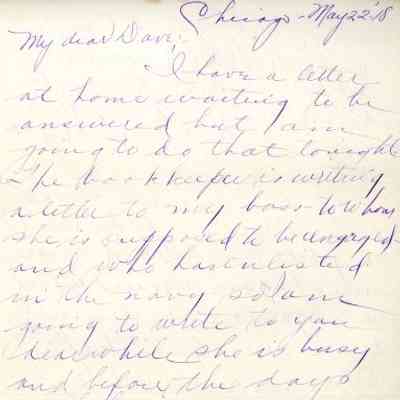 Chicago - May 22 '18
My dear Dave;
I have a letter
at home waiting to be
answered but I am
going to do that tonight
The bookkeeper is writing
a letter to my boss to whom
she is supposed to be engaged
and who has enlisted
in the navy so I am
going to write to you
dear while she is busy
and before the days